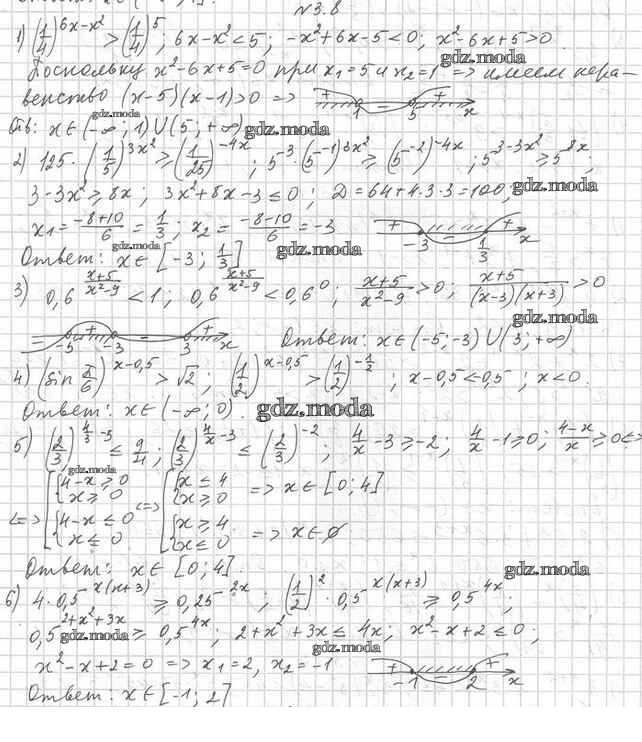 N3.8
1) (1/4)^(6x-x²) > (1/4)^5; 6x-x²<5; -x²+6x-5<0; x²-6x+5>0
gdz.moda
Поскольку x²-6x+5=0 при x₁=5 и x₂=1 => имеем нера-
венство (x-5)(x-1)>0 => + 1 - 5 + x
gdz.moda
Отв: x∈(-∞; 1)∪(5; +∞) gdz.moda
2) 125·(1/5)^(3x²) ≥ (1/25)^(-4x); 5^(-3)·(5^(-1))^(3x²) ≥ (5^(-2))^(-4x); 5^(3-3x²) ≥ 5^(8x);
3-3x² ≥ 8x; 3x²+8x-3 ≤ 0; D=64+4·3·3=100;
gdz.moda
x₁ = (-8+10)/6 = 1/3; x₂ = (-8-10)/6 = -3 + -3 - 1/3 + x
gdz.moda
Ответ: x∈[-3; 1/3] gdz.moda
3) 0,6^((x+5)/(x²-9)) < 1; 0,6^((x+5)/(x²-9)) < 0,6^0; (x+5)/(x²-9) > 0; (x+5)/((x-3)(x+3)) > 0
gdz.moda
- -5 + -3 - 3 + x Ответ: x∈(-5; -3)∪(3; +∞)
4) (sin π/6)^(x-0,5) > √2; (1/2)^(x-0,5) > (1/2)^(-1/2); x-0,5<-0,5; x<0.
Ответ: x∈(-∞; 0). gdz.moda
5) (2/3)^(4/3-3) ≤ 9/4; (2/3)^(4/x-3) ≤ (2/3)^(-2); 4/x-3 ≥ -2; 4/x-1 ≥ 0; (4-x)/x ≥ 0 <=>
gdz.moda
<=> [{4-x ≥ 0 x ≥ 0 <=> [{x ≤ 4 x ≥ 0 => x∈[0; 4]
{4-x ≤ 0 x ≤ 0 {x ≥ 4 x ≤ 0 => x∈∅
Ответ: x∈[0; 4]. gdz.moda
6) 4·0,5^(x(x+3)) ≥ 0,25^(2x); (1/2)^2·0,5^(x(x+3)) ≥ 0,5^(4x);
0,5^(2+x²+3x) ≥ 0,5^(4x); 2+x²+3x ≤ 4x; x²-x+2 ≤ 0;
gdz.moda gdz.moda
x²-x+2=0 => x₁=2, x₂=-1 + -1 - 2 + x
Ответ: x∈[-1; 2]